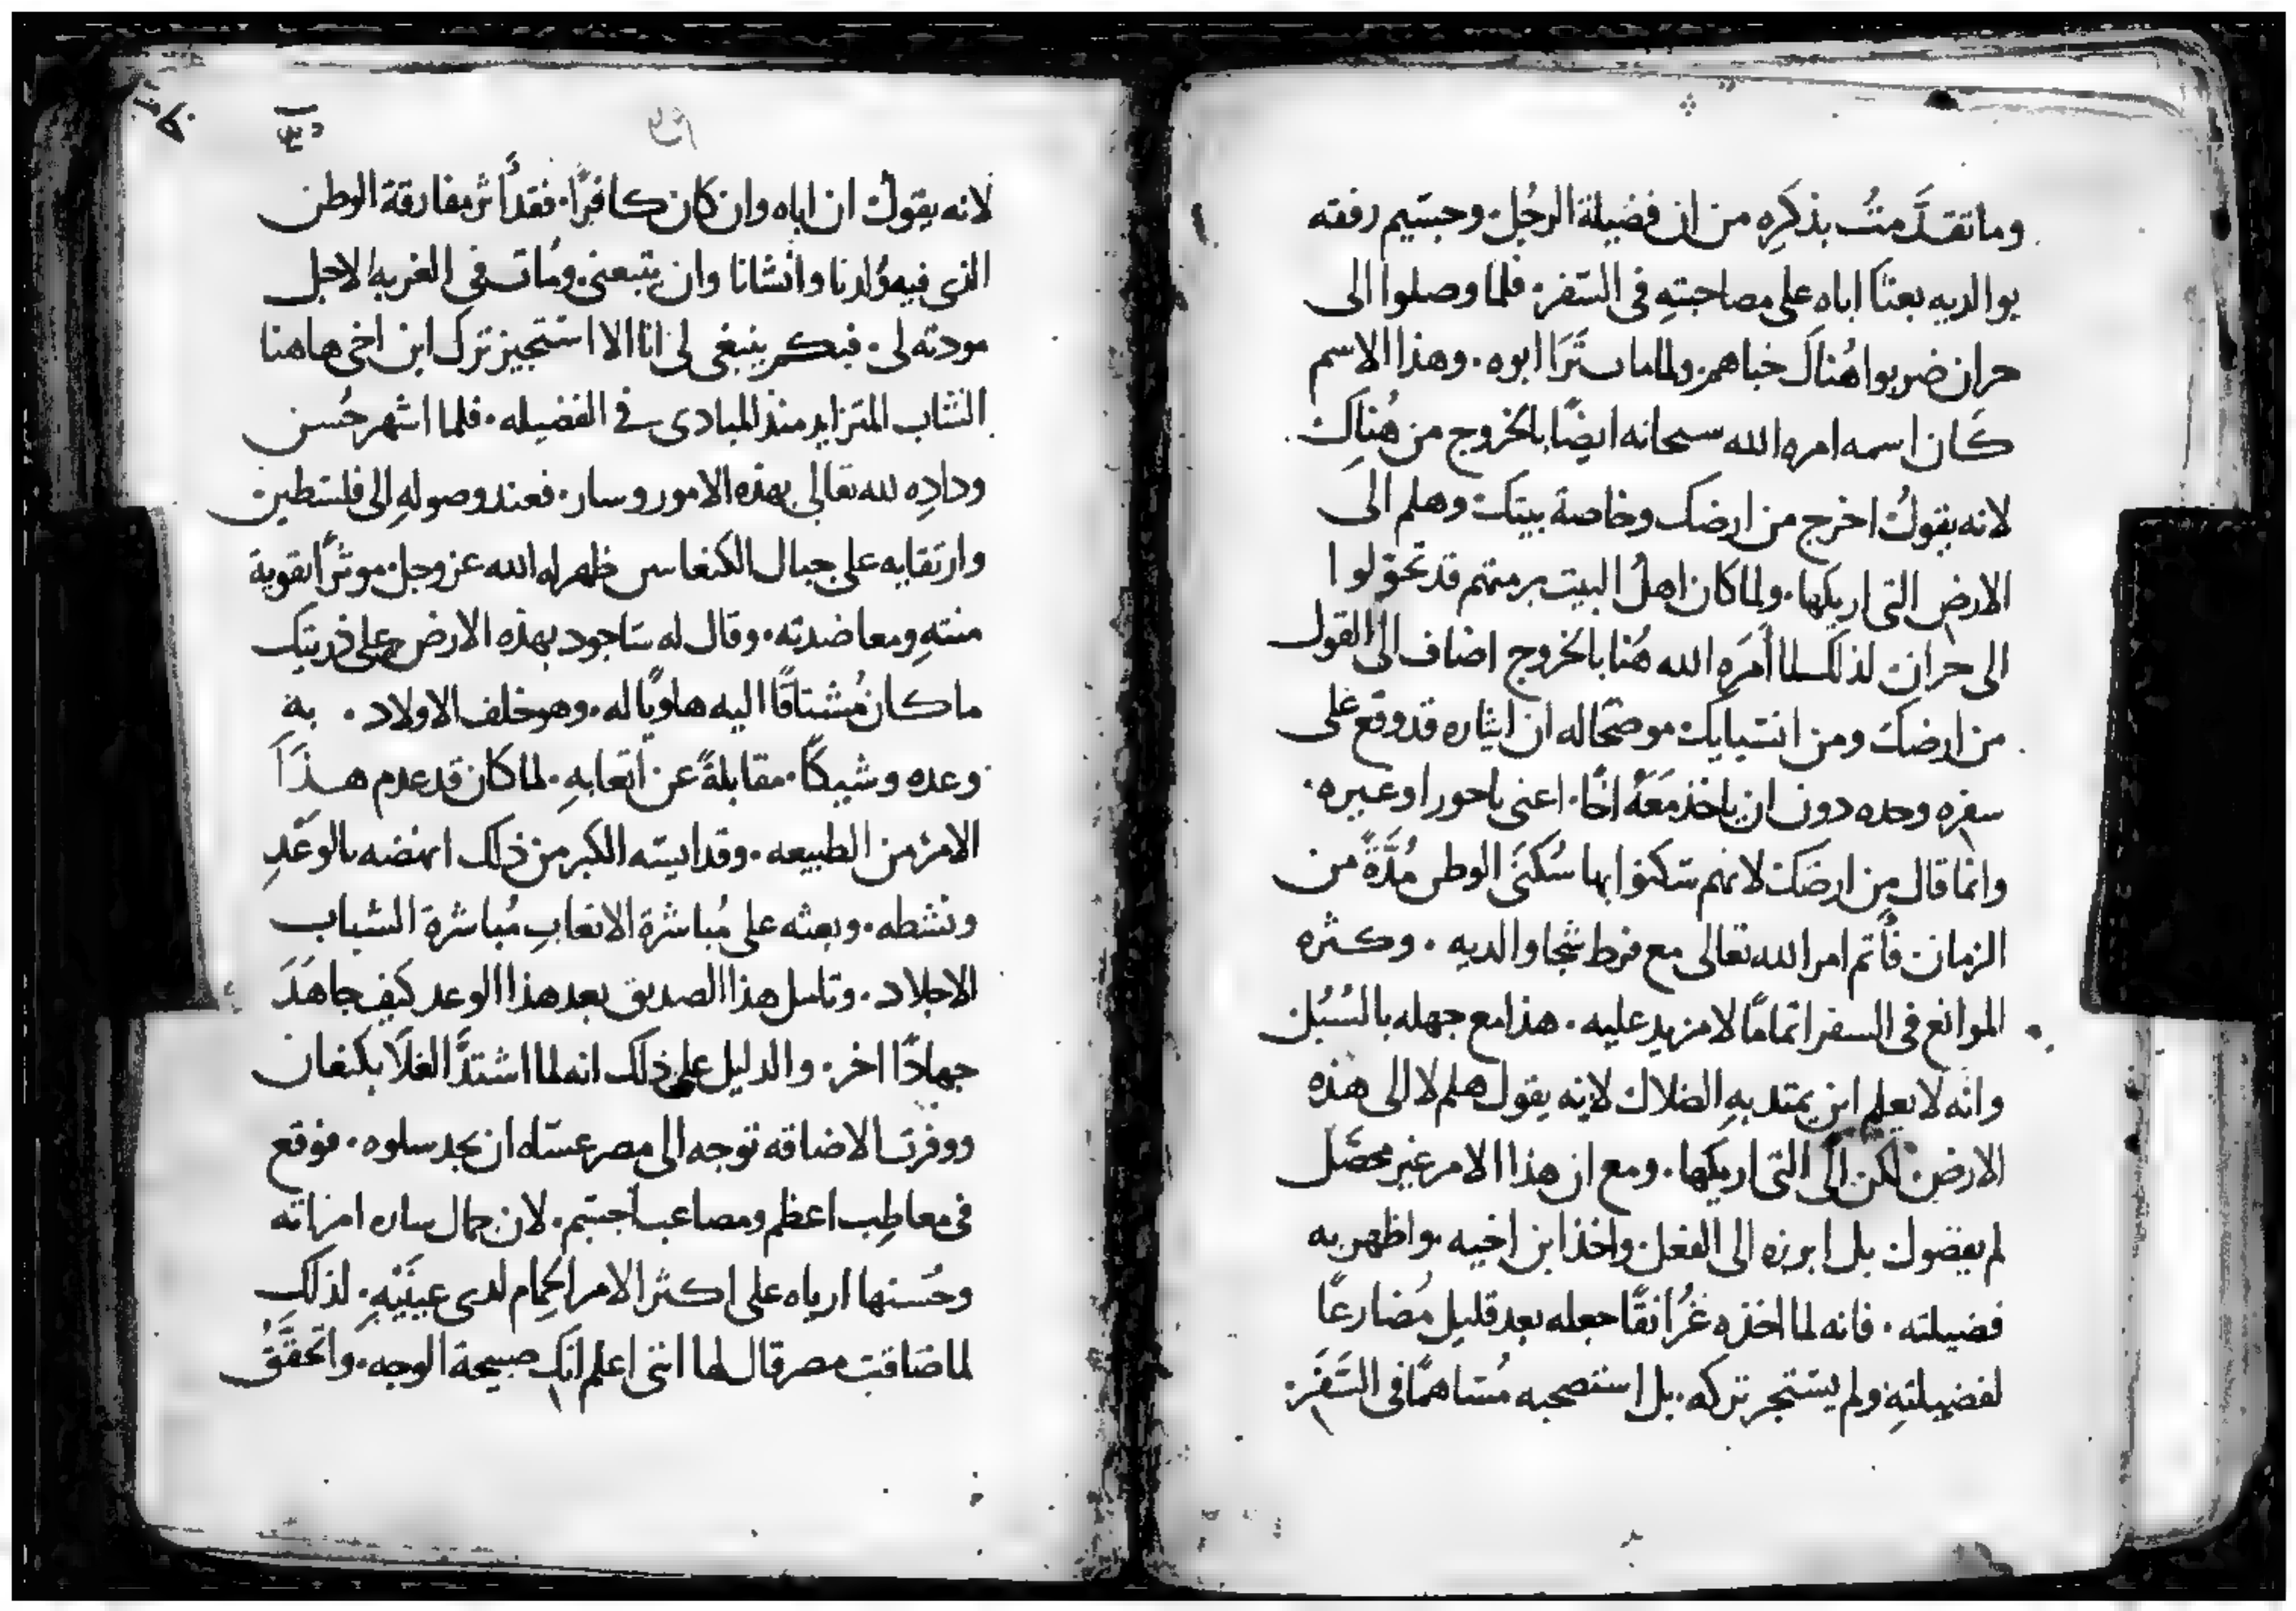 وما تقدَّمتُ بذكرِه من ان فضيلة الرجُل. وحبتيم رفقته
بوالديه بعثا اباه على مصاحبتهِ في السّفر. فلما وصلوا الى
حران ضربوا هُناكَ خباهم. ولما مات تَرَا ابوه. وهذا الاسم
كَان اسمه امره الله سبحانه ايضًا بالخروج من هُناكَ.
لانه يقولُ اخرج من ارضك وخاصة بيتك وهلم الى
الارض التى اريكها. ولما كان اهلُ البيت برمتهم قد تحوّلوا
الى حران لذلك لما أَمَرَه الله هُنا بالخروج اضاف الى القول
من ارضك ومن انسبايك موضحًا له ان ايثاره قد وقع على
سفره وحده دون ان ياخذ مَعَهُ اخًا. اعنى ناحور او غيره.
وانما قال من ارضَك لانهم سكنوا بها سُكنَى الوطن مُدَّةً من
الزمان فأتم امر الله تعالى مع فرط شجا والديه. وكثره
الموانع فى السفر اتمامًا لا مزيد عليه. هذا مع جهله بالسُبُل
وانه لا يعلم اين يمتد بهِ الضلال لانه يقول هلم لا الى هذه
الارض لكن الى التى اريكها. ومع ان هذا الامر غير محصّل
لم يفصول بل ابرزه الى الفعل. واخذ ابن اخيه واظهر به
فضيلته. فانه لما اخذه غُرُانقًا جعله بعد قليل مُضارعًا
لفضيلتهِ ولم يستجر تركه. بل استصحبه مُساهمًا فى السَفَر.
لانه يقولُ ان اباه وان كان كافرًا. فقد أثر مفارقة الوطن
الذى فيه وُلدنا وانشانا وان يتبعنى. ومُات فى الغربه لاجل
مودته لى. فبكم ينبغى لى انا الا استجيز ترك ابن اخى هاهنا
الشاب المتزايد منذ المبادى فى الفضيله. فلما اشهر حُسن
ودادِه لله تعالى بهذه الامور وسار. فعند وصولهِ الى فلسطين
وارتقايه على جبال الكنعانيين ظهر له الله عز وجل. موثرًا تقوية
منتهِ ومعاضدته. وقال له ساجود بهذه الارض على ذريتك
ما كان مُشتاقًا اليه هاويًا له. وهو خلف الاولاد. بهِ
وعده وشيكًا. مقابلةً عن اتعابهِ. لما كان قد عدم هذا
الامر من الطبيعه. وقد ايسته الكبر من ذلك انهضه بالوَعْدِ
ونشطه. وبعثه على مُباشرة الاتعابِ مُباشرة الشباب
الاجلاد. وتامل هذا الصديق بعد هذا الوعد كيف جاهَدَ
جهادًا اخر. والدليل على ذلك انه لما اشتدَّ الغلَا بكنعان
ووفرت الاضاقه توجه الى مصر عساه ان يجد سلوه. فوقع
فى معاطِب اعظم ومصاعب اجسم. لان جمال سارا امراته
وحُسنها ارياه على اكثر الامر الحِمام لدى عينَيْهِ. لذلك
لما صاقبت مصر قال لها اننى اعلم انك صبيحة الوجه. واتحقَّقُ